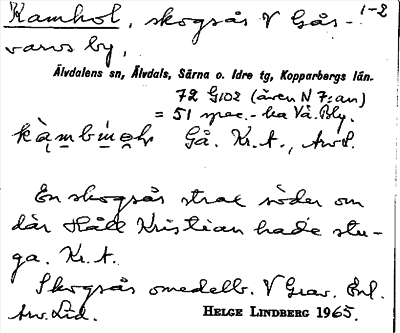 Kamhol, skogsås V Gås- 1-2
varvs by,
Älvdalens sn, Älvdals, Särna o. Idre tg, Kopparbergs län.
72 G102 (även N 7:an)
= 51 spec. - ka Vå. Bly.
Gå. Kr. A.,
En skogsås strax söder om
där Håll Kristian hade stu-
ga. Kr. A.
Skogsås omedelb. V Grav. Enl.
Anv. Lid. HELGE LINDBERG 1965.